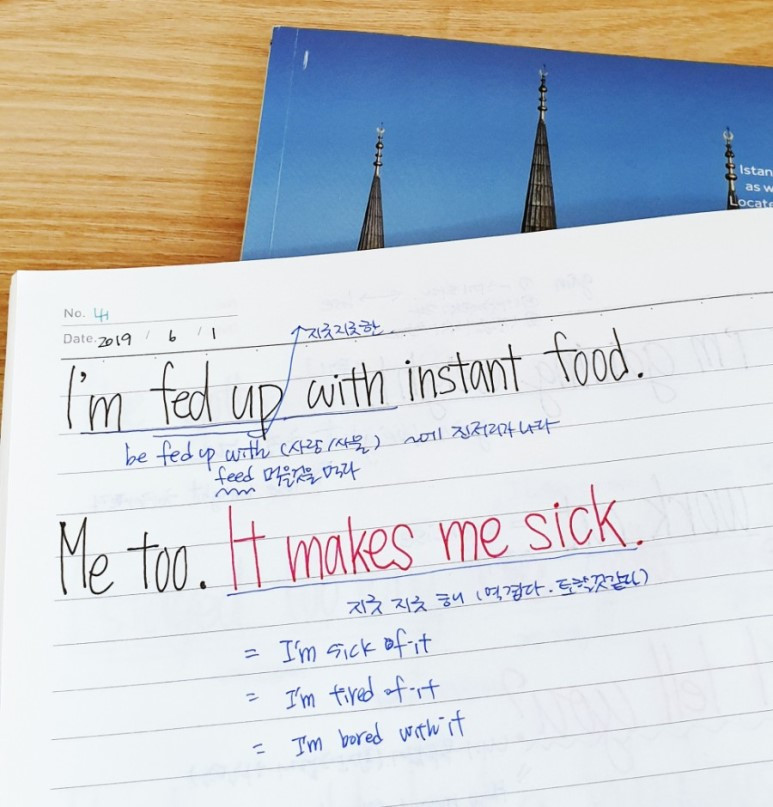 Istan
as w
Locate
No. 4
Date. 2019 / 6 / 1
지긋지긋한
I'm fed up with instant food.
be fed up with (사람/사물) ~에 진저리가 나다
feed 먹을것을 먹다
Me too. It makes me sick.
지긋지긋해 (역겹다. 토할것같다)
= I'm sick of it
= I'm tired of it
= I'm bored with it